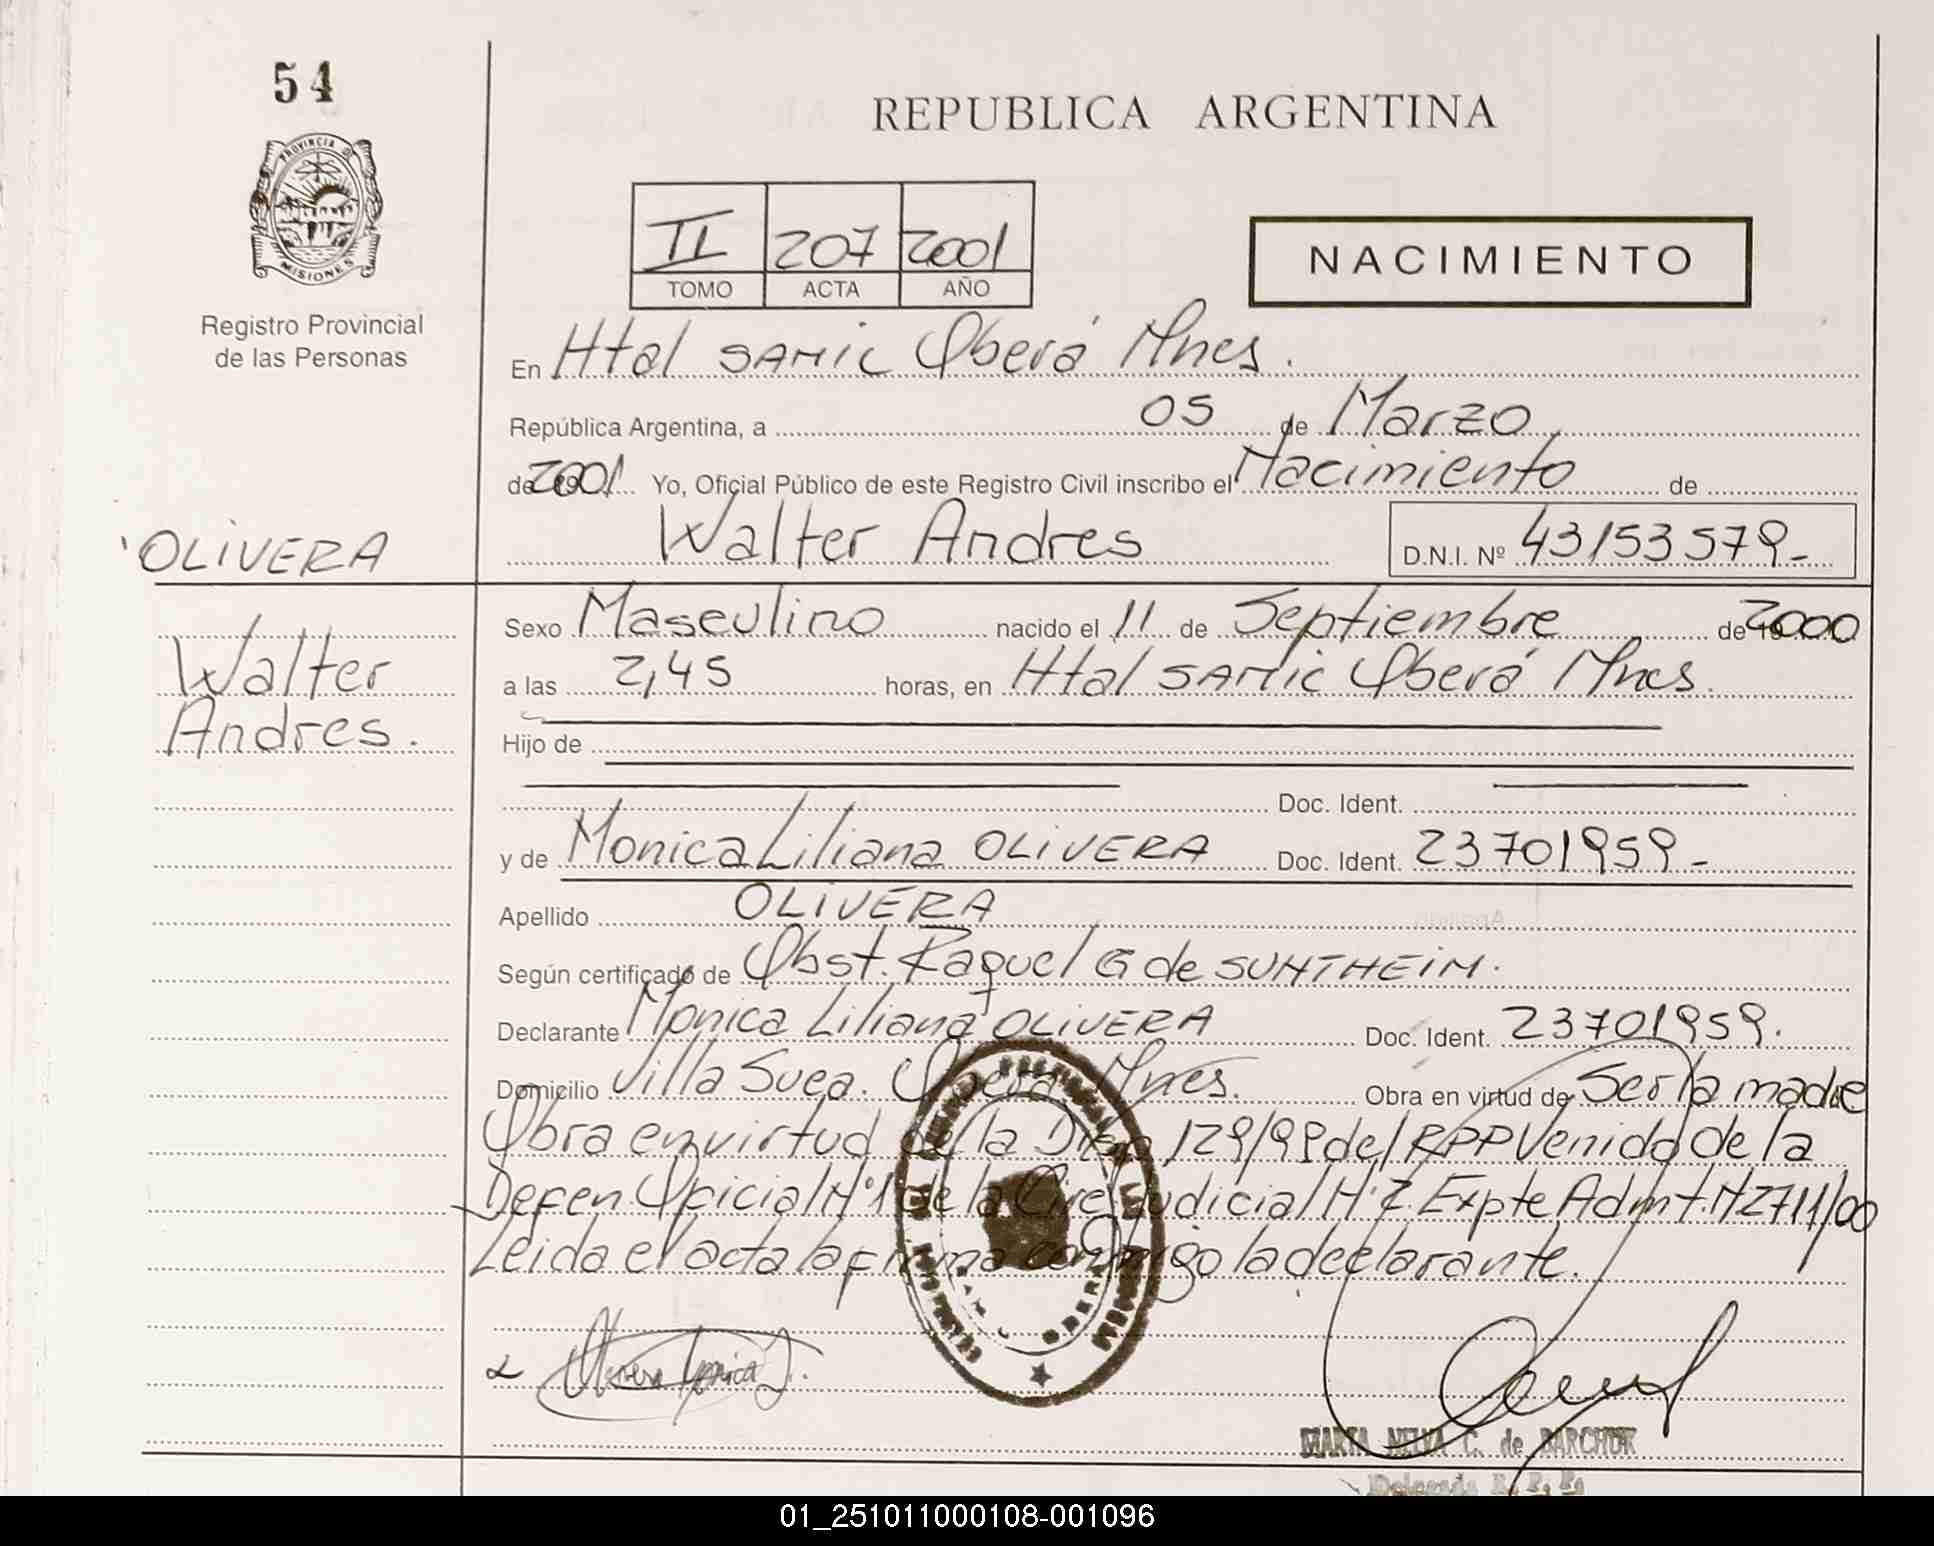 54
REPUBLICA ARGENTINA
PROVINCIA DE
MISIONES
II 207 2001
TOMO ACTA AÑO
NACIMIENTO
Registro Provincial
de las Personas
En Htal SAMIC Oberá Mnes.
República Argentina, a 05 de Marzo
de 2001 Yo, Oficial Público de este Registro Civil inscribo el Nacimiento de
Walter Andres D.N.I. Nº 43153579-
OLIVERA
Walter
Andres.
Sexo Masculino nacido el 11 de Septiembre de 2000
a las 2,45 horas, en Htal SAMIC Oberá Mnes.
Hijo de
Doc. Ident.
y de Monica Liliana OLIVERA Doc. Ident. 23701959-
Apellido OLIVERA
Según certificado de Obst. Raquel G de SUNTHEIM.
Declarante Monica Liliana OLIVERA Doc. Ident. 23701959.
Domicilio Villa Suea. Oberá Mnes. Obra en virtud de Ser la madre
Obra en virtud de la Disp 129/99 del RPP Venido de la
Defen Oficial Nº1 de la Circ Judicial Nº2 Expte Admt. N2711/00
Leida el acta la firma conmigo la declarante.
Olivera Monica L.
MARTA NELVA C. de BARCHUK
Delegada R. P. P.
01_251011000108-001096